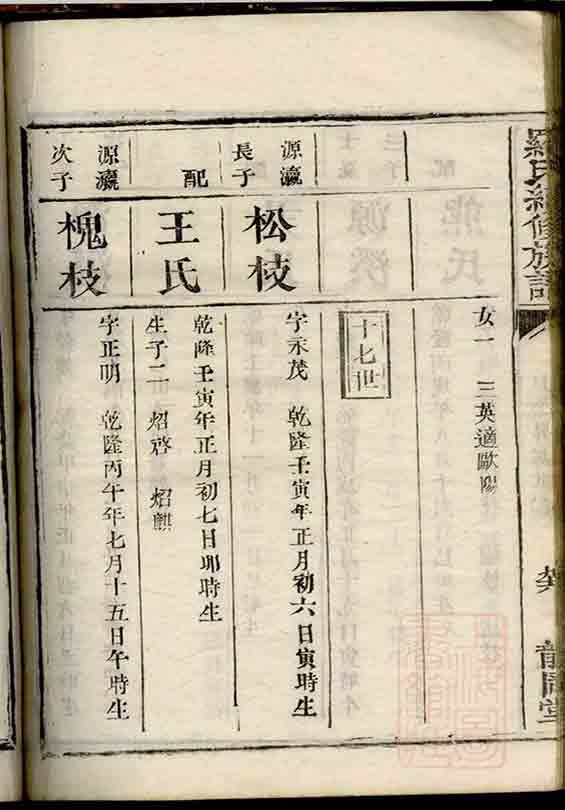 羅氏續修族譜
女一 三英適歐陽
十七世
源瀛長子
松枝
字永茂 乾隆壬寅年正月初六日寅時生
配
王氏
乾隆壬寅年正月初七日卯時生
生子二 炤啓 炤麒
源瀛次子
槐枝
字正明 乾隆丙午年七月十五日午時生